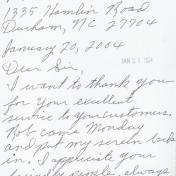 1335 Hamlin Road
Durham, NC 27704
January 20, 2004
JAN 21
Dear Sir,
I want to thank you
for your exellent
service to your customers.
Rob came Monday
and put my screen back
in. I appriciate your
friendly people, always